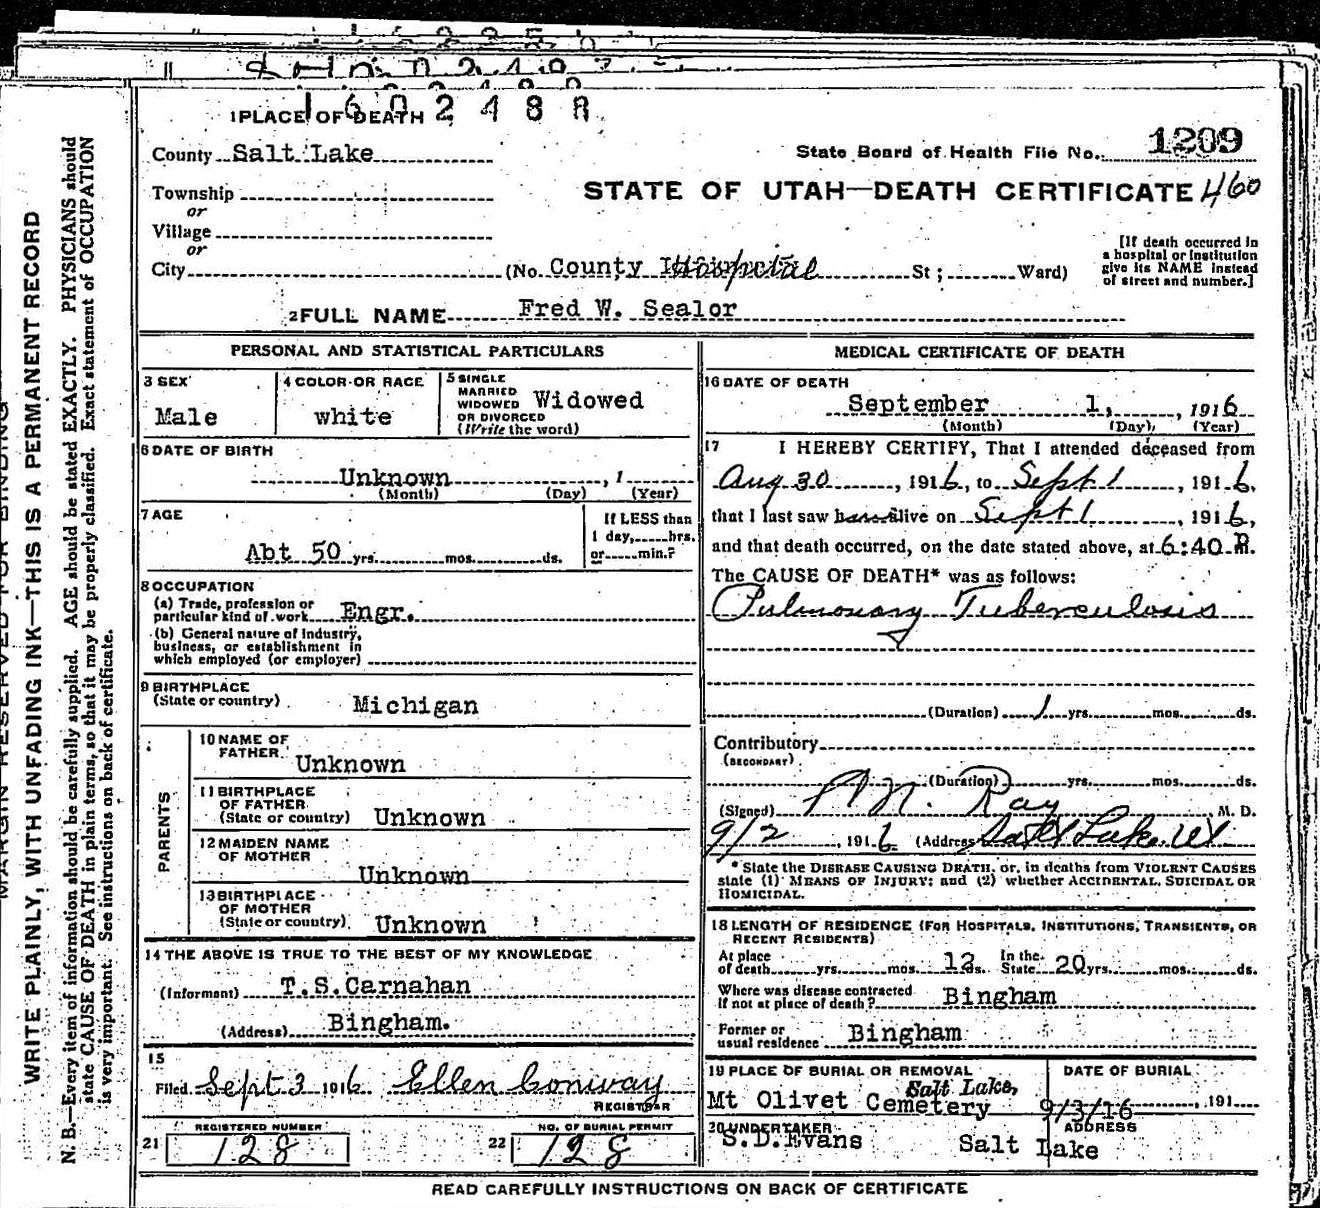 1602488
1 PLACE OF DEATH
County Salt Lake
State Board of Health File No. 1209
Township
or
STATE OF UTAH—DEATH CERTIFICATE 460
Village
or
City (No. County Hospital St; Ward)
[If death occurred in
a hospital or institution
give its NAME instead
of street and number.]
2 FULL NAME Fred W. Sealor
PERSONAL AND STATISTICAL PARTICULARS
3 SEX
Male
4 COLOR OR RACE
white
5 SINGLE
MARRIED
WIDOWED
OR DIVORCED
(Write the word)
Widowed
6 DATE OF BIRTH
Unknown , 1
(Month) (Day) (Year)
7 AGE
Abt 50 yrs. mos. ds.
If LESS than
1 day, hrs.
or min.?
8 OCCUPATION
(a) Trade, profession or
particular kind of work Engr.
(b) General nature of Industry,
business, or establishment in
which employed (or employer)
9 BIRTHPLACE
(State or country) Michigan
PARENTS
10 NAME OF
FATHER Unknown
11 BIRTHPLACE
OF FATHER
(State or country) Unknown
12 MAIDEN NAME
OF MOTHER
Unknown
13 BIRTHPLACE
OF MOTHER
(State or country) Unknown
14 THE ABOVE IS TRUE TO THE BEST OF MY KNOWLEDGE
(Informant) T.S.Carnahan
(Address) Bingham.
15
Filed Sept 3 1916 Ellen Conway
REGISTRAR
21 REGISTERED NUMBER
128
22 NO. OF BURIAL PERMIT
128
MEDICAL CERTIFICATE OF DEATH
16 DATE OF DEATH
September 1, , 1916
(Month) (Day) (Year)
17 I HEREBY CERTIFY, That I attended deceased from
Aug 30 , 1916, to Sept 1 , 1916,
that I last saw alive on Sept 1 , 1916,
and that death occurred, on the date stated above, at 6:40 P.
The CAUSE OF DEATH* was as follows:
Pulmonary Tuberculosis
(Duration) 1 yrs. mos. ds.
Contributory
(SECONDARY)
(Duration) yrs. mos. ds.
(Signed) Ray M. D.
9/2 , 1916 (Address) Salt Lake. Ut.
* State the DISEASE CAUSING DEATH, or, in deaths from VIOLENT CAUSES
state (1) MEANS OF INJURY; and (2) whether ACCIDENTAL, SUICIDAL OR
HOMICIDAL.
18 LENGTH OF RESIDENCE (FOR HOSPITALS, INSTITUTIONS, TRANSIENTS, OR
RECENT RESIDENTS)
At place
of death yrs. mos. ds. In the
State 20 yrs. mos. ds.
Where was disease contracted
if not at place of death? Bingham
Former or
usual residence Bingham
19 PLACE OF BURIAL OR REMOVAL
Salt Lake,
Mt Olivet Cemetery
DATE OF BURIAL
9/3/16 , 191
20 UNDERTAKER
S.D.Evans
ADDRESS
Salt Lake
READ CAREFULLY INSTRUCTIONS ON BACK OF CERTIFICATE
MARGIN RESERVED FOR BINDING
WRITE PLAINLY, WITH UNFADING INK—THIS IS A PERMANENT RECORD
N. B.—Every item of information should be carefully supplied. AGE should be stated EXACTLY. PHYSICIANS should
state CAUSE OF DEATH in plain terms, so that it may be properly classified. Exact statement of OCCUPATION
is very important. See instructions on back of certificate.